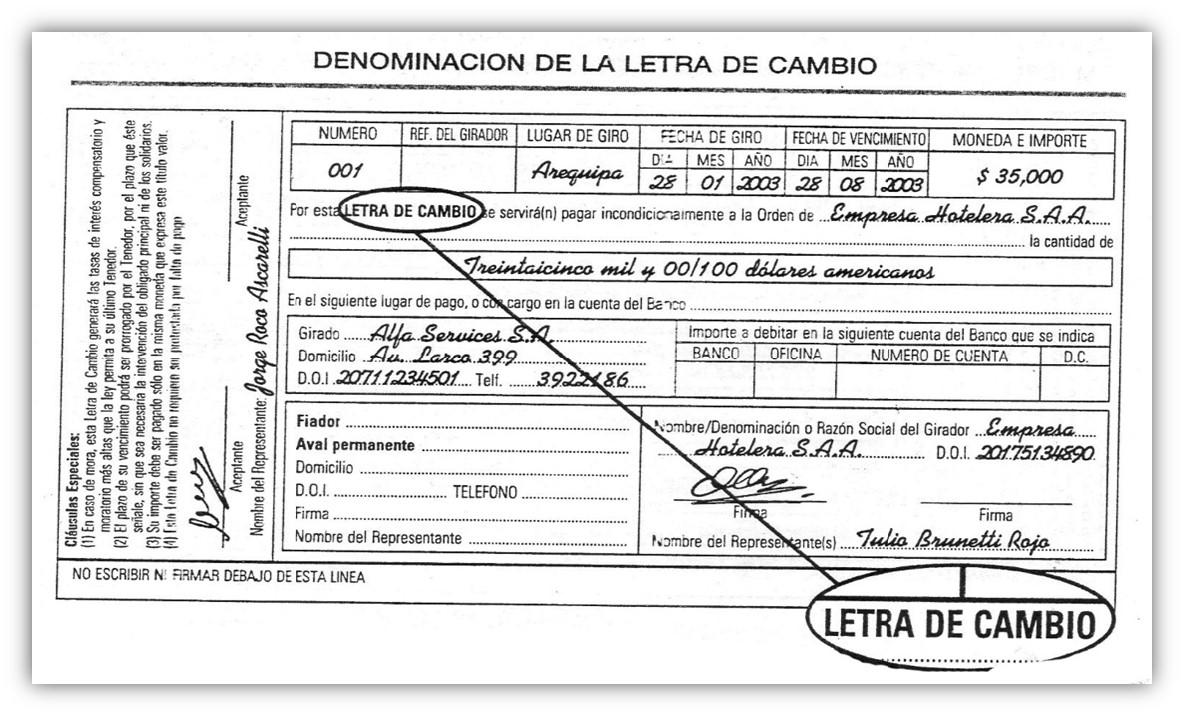 DENOMINACION DE LA LETRA DE CAMBIO
Cláusulas Especiales:
(1) En caso de mora, esta Letra de Cambio generará las tasas de interés compensatorio y
moratorio más altas que la ley permita a su último Tenedor.
(2) El plazo de su vencimiento podrá ser prorrogado por el Tenedor, por el plazo que éste
señale, sin que sea necesaria la intervención del obligado principal ni de los solidarios.
(3) Su importe debe ser pagado sólo en la misma moneda que expresa este título valor.
(4) Esta Letra de Cambio no requiere ser protestada por falta de pago
Aceptante Aceptante
Nombre del Representante: Jorge Roco Ascarelli
NUMERO REF. DEL GIRADOR LUGAR DE GIRO FECHA DE GIRO FECHA DE VENCIMIENTO MONEDA E IMPORTE
DIA MES AÑO DIA MES AÑO
001 Arequipa 28 01 2003 28 08 2003 $ 35,000
Por esta LETRA DE CAMBIO se servirá(n) pagar incondicionalmente a la Orden de Empresa Hotelera S.A.A.
la cantidad de
Treintaicinco mil y 00/100 dólares americanos
En el siguiente lugar de pago, o con cargo en la cuenta del Banco
Girado Alfa Services S.A.
Domicilio Av. Larco 399
D.O.I. 20711234501 Telf. 3922186
Importe a debitar en la siguiente cuenta del Banco que se indica
BANCO OFICINA NUMERO DE CUENTA D.C.
Fiador
Aval permanente
Domicilio
D.O.I. TELEFONO
Firma
Nombre del Representante
Nombre/Denominación o Razón Social del Girador Empresa
Hotelera S.A.A. D.O.I. 20175134890
Firma Firma
Nombre del Representante(s) Tulio Brunetti Rojo
NO ESCRIBIR NI FIRMAR DEBAJO DE ESTA LINEA
LETRA DE CAMBIO